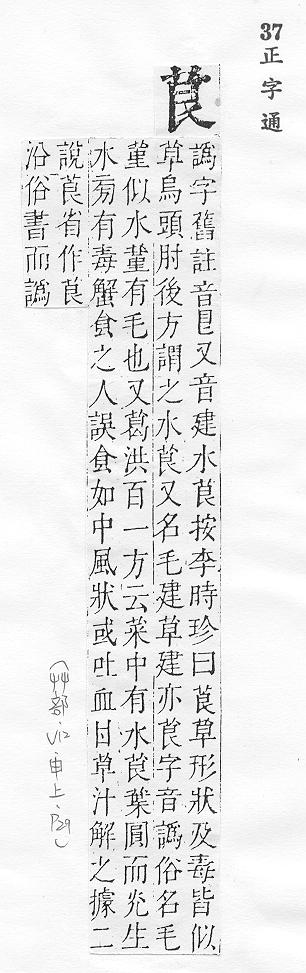 37 正字通
茛
譌字舊註音艮又音建水茛按李時珍曰茛草形狀及毒皆似
草烏頭肘後方謂之水茛又名毛建草建亦茛字音譌俗名毛
菫似水菫有毛也又葛洪百一方云菜中有水茛葉圓而光生
水旁有毒蟹食之人誤食如中風狀或吐血甘草汁解之據二
說茛省作茛
沿俗書而譌
(艸部、V12、申上、P29)